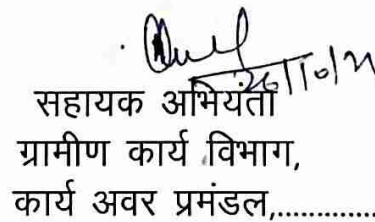 सहायक अभियंता
ग्रामीण कार्य विभाग,
कार्य अवर प्रमंडल,.............